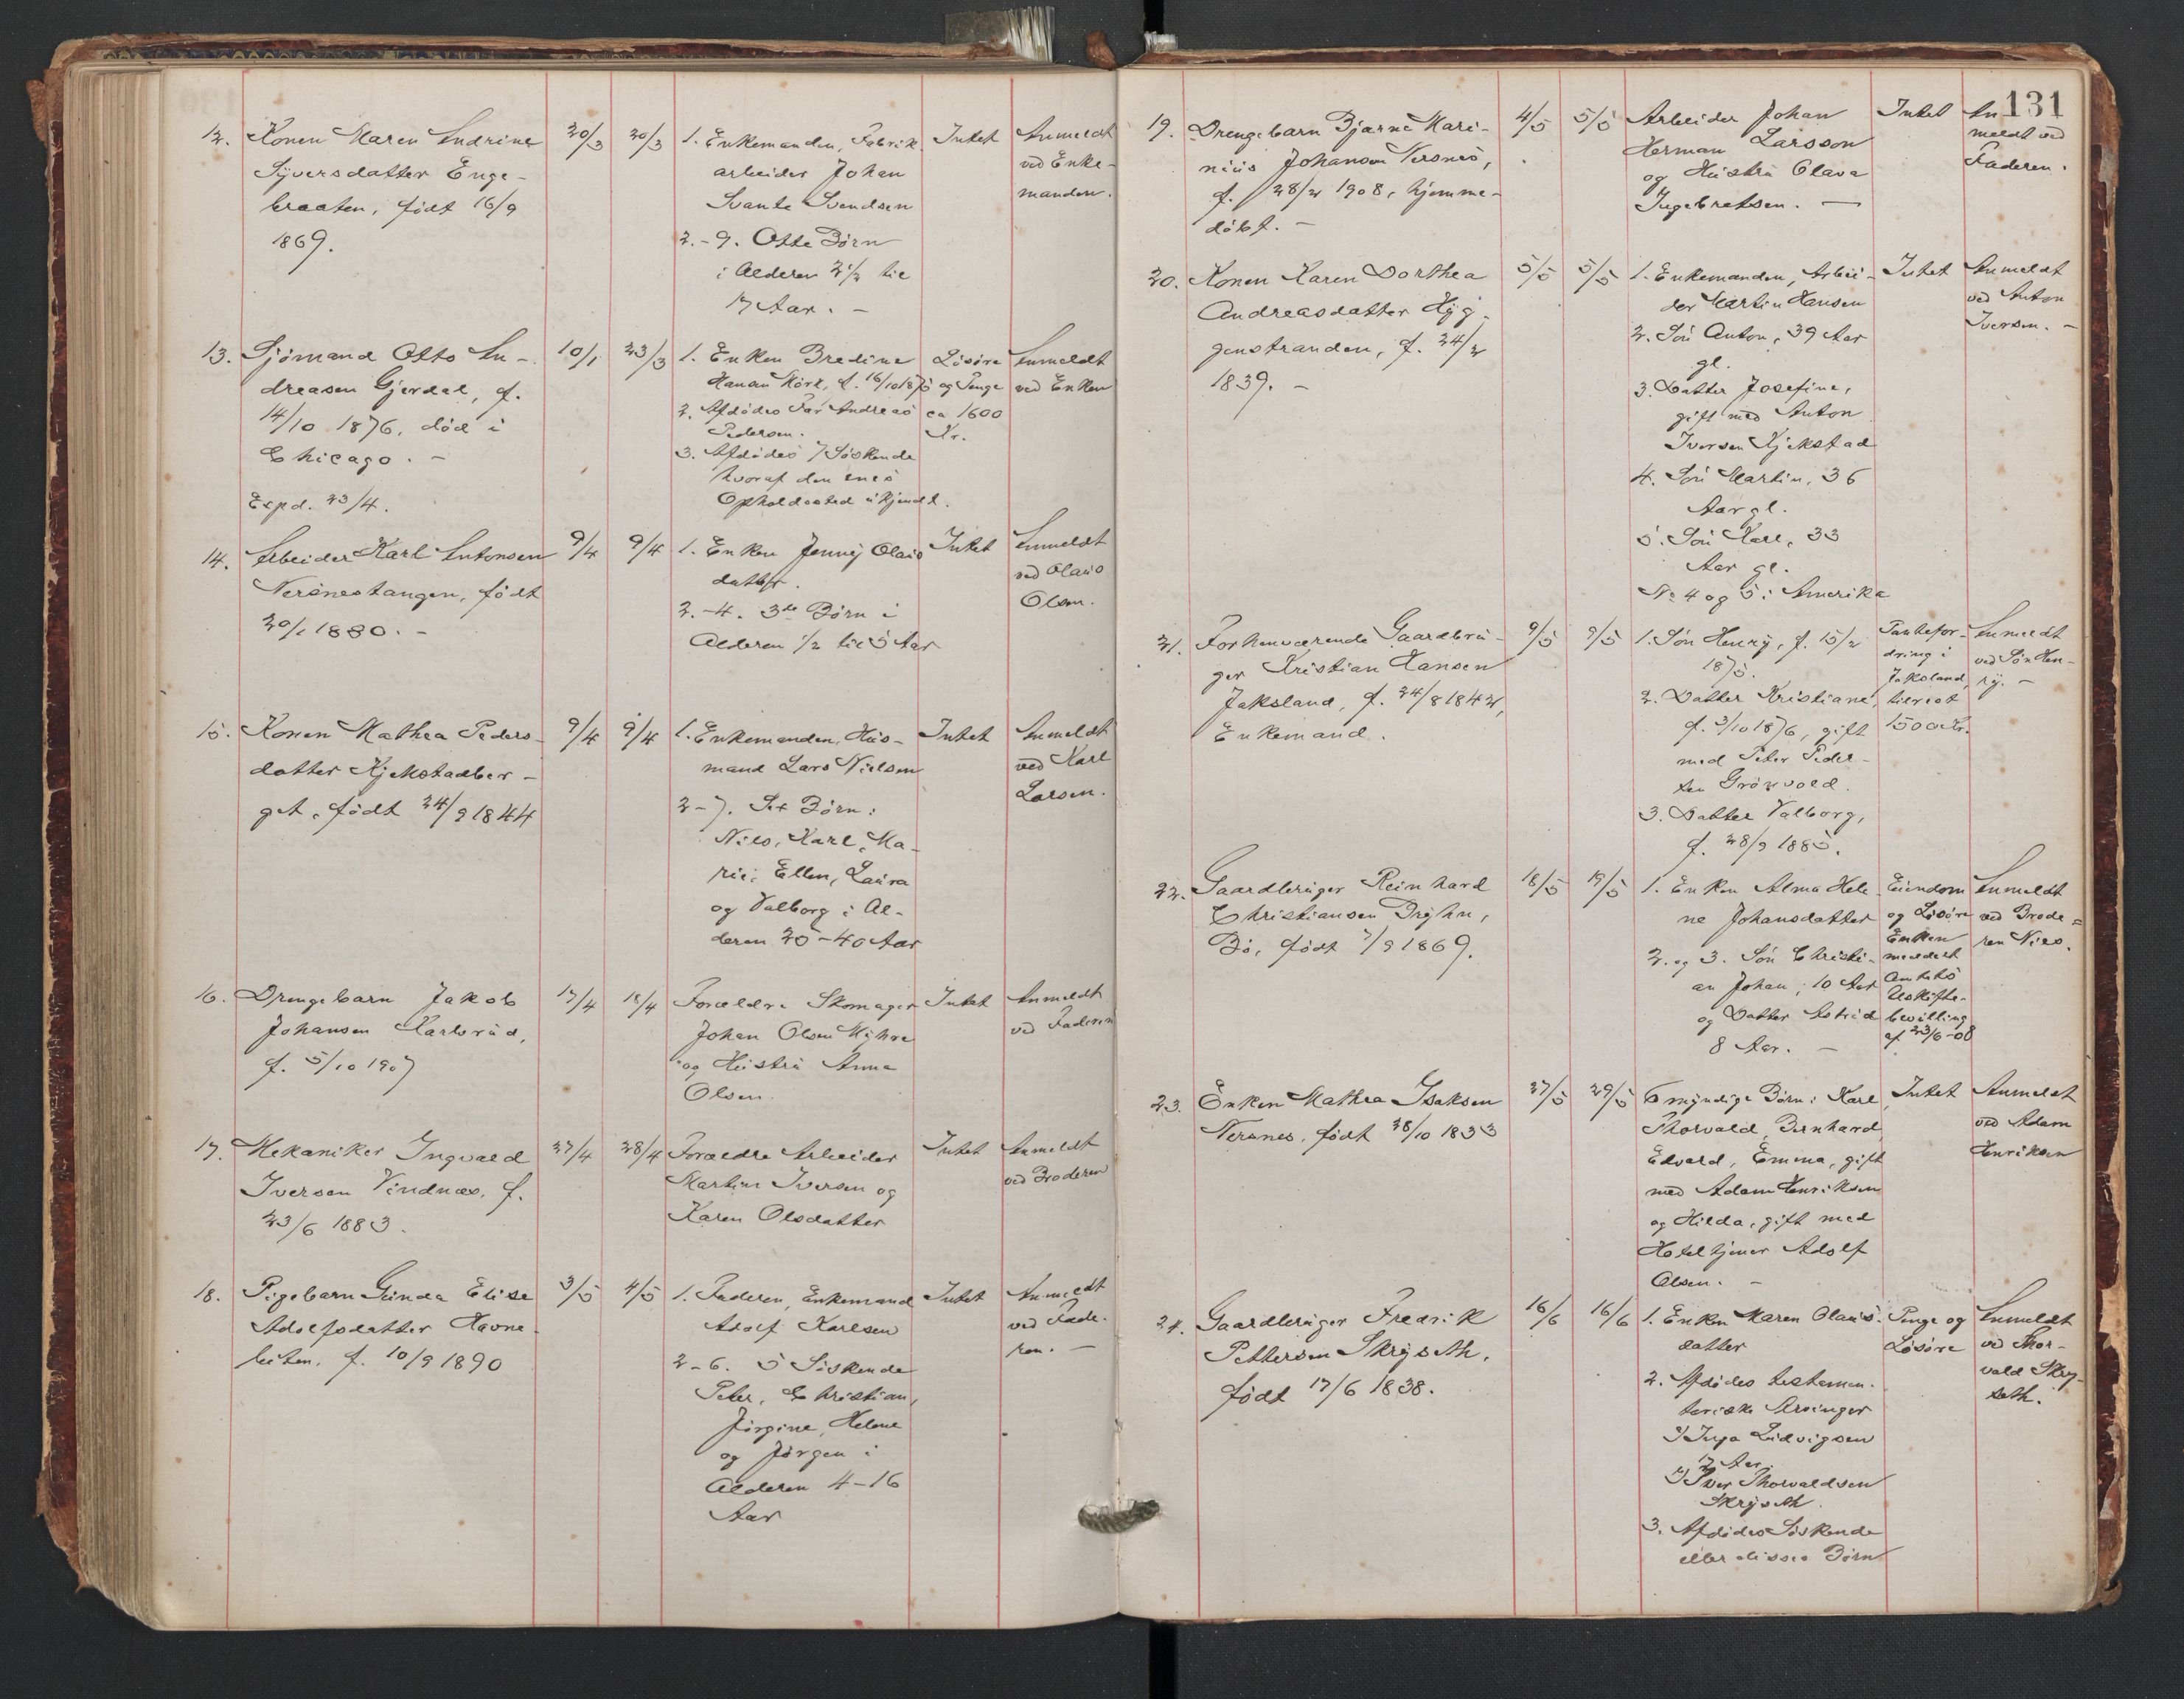 12. Konen Maren Andrine 20/3 20/3 1. Enkemanden, Fabrik- Intet Anmeldt
Syversdatter Enge- arbeider Johan ved Enke-
braaten, født 16/9 Svante Svendsen manden.
1869. 2.-9. Otte Børn
i Alderen 2 1/2 til
17 Aar. -
13. Sjømand Otto An- 10/1 23/3 1. Enken Bredine Løsøre Anmeldt
dreasen Gjerdal, f. Hansen Mörk, f. 16/10 1875 og Penge ved Enken
14/10 1876, død i 2. Afdødes Far Andreas ca 1600
Chicago. - Pedersen. Kr.
3. Afdødes 7 Søskende
hvoraf den enes
Expd. 23/4. Opholdssted ukjendt.
14. Arbeider Karl Antonsen 9/4 9/4 1. Enken Jenny Olaus Intet Anmeldt
Nersnestangen, født datter. ved Olaus
20/1 1880. - 2.-4. 3de Børn i Olsen.
Alderen 1/2 til 5 Aar
15. Konen Mathea Peders- 9/4 9/4 1. Enkemanden, Hus- Intet Anmeldt
datter Kjekstadber- mand Lars Nielsen ved Karl
get, født 24/9 1844 2-7. Sex Børn: Larsen.
Nils, Karl, Ma-
rie, Ellen, Laura
og Valborg i Al-
deren 25-40 Aar
16. Drengebarn Jakob 17/4 18/4 Forældre Skomager Intet Anmeldt
Johansen Karlsrud, Johan Olsen Myhre ved Faderen
f. 5/10 1907 og Hustru Anna
Olsen.
17. Mekaniker Ingvald 27/4 28/4 Forældre Arbeider Intet Anmeldt
Iversen Vindnæs, f. Martin Iversen og ved Broderen
23/6 1883. Karen Olsdatter
18. Pigebarn Gunda Elise 3/5 4/5 1. Faderen, Enkemand Intet Anmeldt
Adolfsdatter Havne- Adolf Karlsen ved Fade-
biten, f. 10/9 1890 2-6. 5 Søskende ren. -
Peter, Christian,
Jørgine, Helene
og Jørgen i
Alderen 4-16
Aar
131
19. Drengebarn Bjarne Mari- 4/5 5/5 Arbeider Johan Intet An
nius Johansen Nersnes, Herman Larsson meldt ved
f. 28/2 1908, hjemme- og Hustru Olava Faderen.
døbt. - Ingebretsen. -
20. Konen Karen Dorthea 5/5 5/5 1. Enkemanden, Arbei- Intet Anmeldt
Andreasdatter Hyg- der Martin Hansen ved Anton
genstranden, f. 24/2 2. Søn Anton, 39 Aar Iversen. -
1839. - gl.
3. Datter Josefine,
gift med Anton
Iversen Kjekstad
4. Søn Martin, 36
Aar gl.
5. Søn Karl, 33
Aar gl.
No 4 og 5 i Amerika
21. Forhenværende Gaardbru- 9/5 9/5 1. Søn Henry, f. 15/2 Pantefor- Anmeldt
ger Kristian Hansen 1875. dring i ved Søn Hen-
Jaksland, f. 24/8 1842, 2. Datter Kristiane, Jaksland, ry. -
Enkemand. f. 3/10 1876, gift tilrest
med Peter Peder- 1500 Kr.
sen Grönvold.
3. Datter Valborg,
f. 28/9 1885.
22. Gaardbruger Reinhard 18/5 19/5 1. Enken Alma Hele- Eiendom Anmeldt
Christiansen Bryhn, ne Johansdatter og Løsøre ved Brode-
Bö, født 7/9 1869. 2. og 3. Søn Christi- Enken meddelt ren Nils.
an Johan, 10 Aar Amtets
og Datter Astrid Uskifte-
8 Aar. - bevilling
af 23/6-08
23. Enken Mathea Isaksen 27/5 29/5 6 myndige Børn: Karl Intet Anmeldt
Nersnes, født 28/10 1833 Thorvald, Bernhard, ved Adam
Edvard, Emma, gift Henriksen
med Adam Henriksen
og Hilda, gift med
Hoteltjener Adolf
Olsen. -
24. Gaardbruger Fredrik 16/6 16/6 1. Enken Maren Olaus- Penge og Anmeldt
Pettersen Skryseth, datter Løsøre ved Thor-
født 17/6 1838. 2. Afdødes testamen- vald Skry-
tariske Arvinger seth.
Inga Ludvigsen
17 Aar.
Iver Thorvaldsen
Skryseth.
3. Afdødes Søskende
eller disses Børn